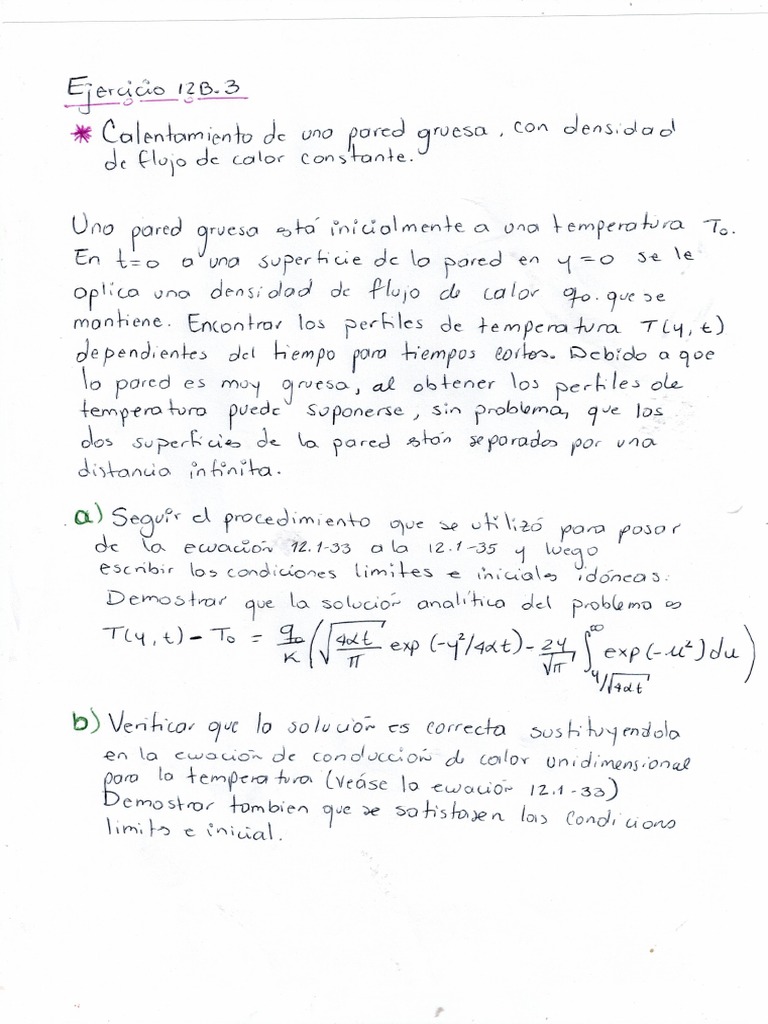 Ejercicio 12B.3
* Calentamiento de una pared gruesa, con densidad
de flujo de calor constante.
Una pared gruesa está inicialmente a una temperatura T₀.
En t=0 a una superficie de la pared en y=0 se le
aplica una densidad de flujo de calor q₀. que se
mantiene. Encontrar los perfiles de temperatura T(y,t)
dependientes del tiempo para tiempos cortos. Debido a que
la pared es muy gruesa, al obtener los perfiles de
temperatura puede suponerse, sin problema, que las
dos superficies de la pared están separados por una
distancia infinita.
a) Seguir el procedimiento que se utilizó para pasar
de la ecuación 12.1-33 a la 12.1-35 y luego
escribir las condiciones limites e iniciales idóneas.
Demostrar que la solución analítica del problema es
T(y,t) - T₀ = q₀/K (√(4αt/π) exp(-y²/4αt) - 2y/√π ∫_{y/√4αt}^{∞} exp(-u²) du)
b) Verificar que la solución es correcta sustituyendola
en la ecuación de conducción de calor unidimensional
para la temperatura (veáse la ecuación 12.1-33)
Demostrar tambien que se satisfasen las condicions
limits e inicial.